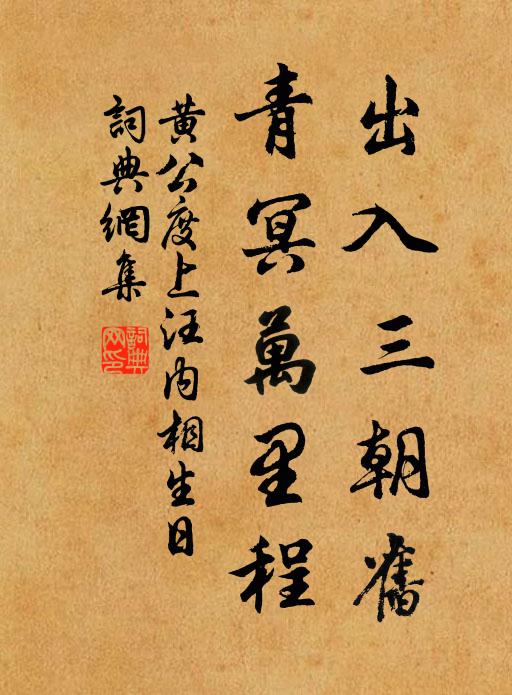 出入三朝舊
青冥萬里程
黃公度上汪内相生日
詞典網集
詞典網印